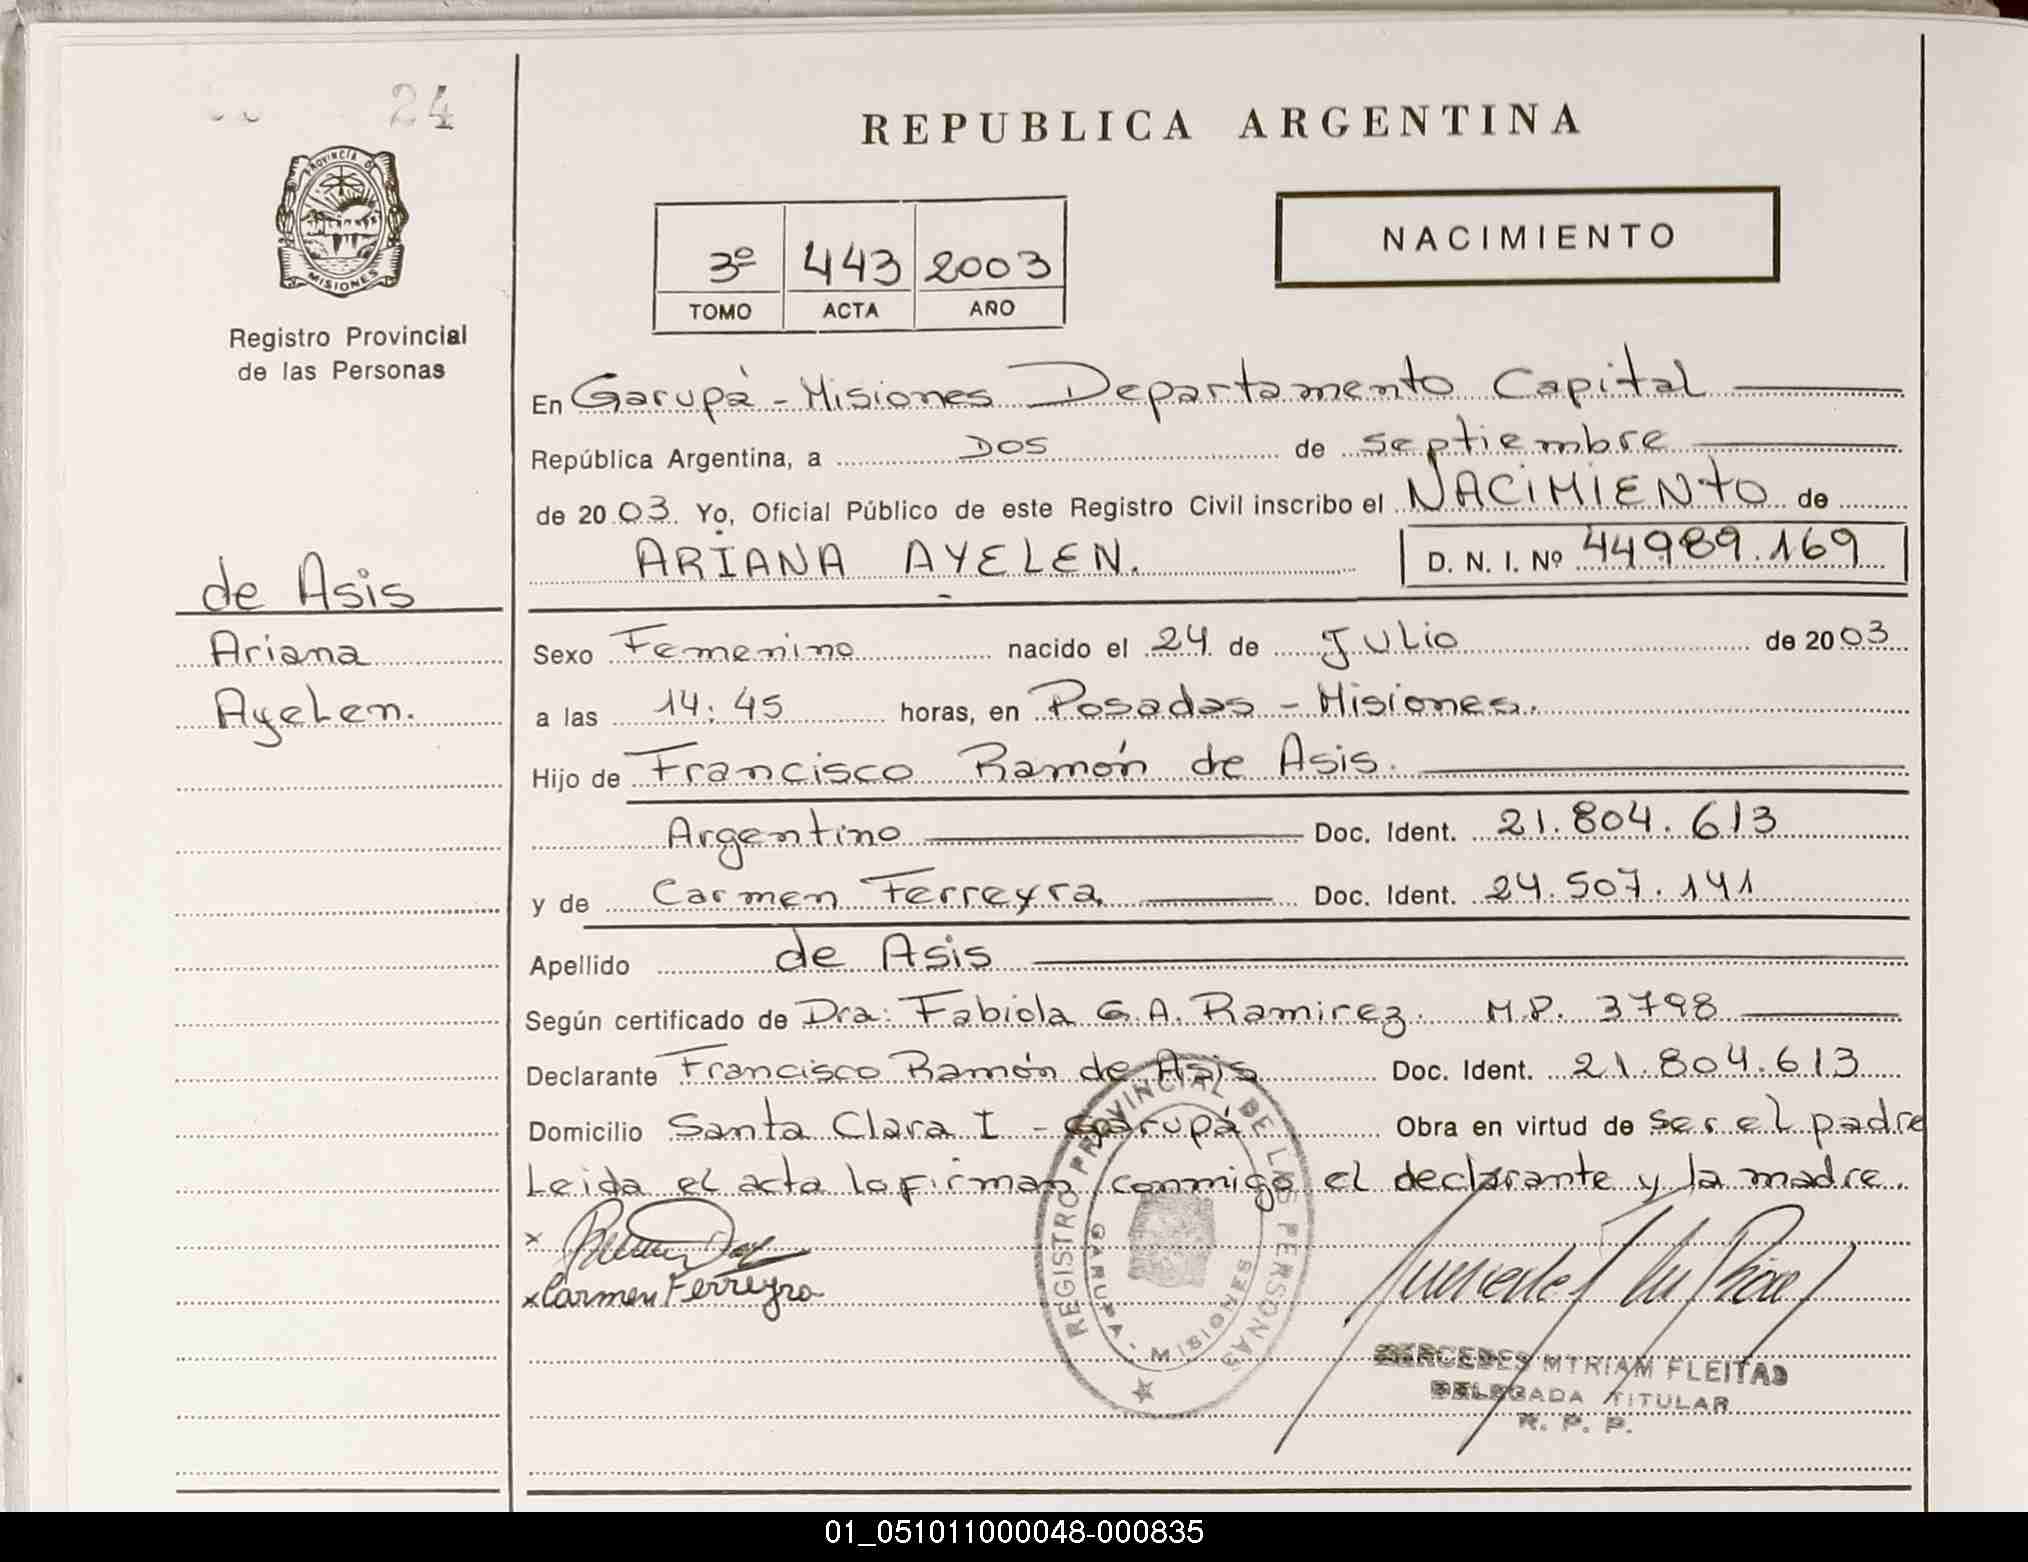 24
PROVINCIA DE
MISIONES
Registro Provincial
de las Personas
de Asis
Ariana
Ayelen.
REPUBLICA ARGENTINA
3º 443 2003
TOMO ACTA AÑO
NACIMIENTO
En Garupá - Misiones Departamento Capital
República Argentina, a Dos de septiembre
de 2003. Yo, Oficial Público de este Registro Civil inscribo el NACIMIENTO de
ARIANA AYELEN. D. N. I. Nº 44989.169
Sexo Femenino nacido el 24 de Julio de 2003
a las 14:45 horas, en Posadas - Misiones.
Hijo de Francisco Ramón de Asis.
Argentino Doc. Ident. 21.804.613
y de Carmen Ferreyra Doc. Ident. 24.507.141
Apellido de Asis
Según certificado de Dra: Fabiola G.A. Ramirez. M.P. 3798
Declarante Francisco Ramón de Asis Doc. Ident. 21.804.613
Domicilio Santa Clara I - Garupá Obra en virtud de ser el padre
Leida el acta la firman conmigo el declarante y la madre.
x
x Carmen Ferreyra
REGISTRO PROVINCIAL DE LAS PERSONAS
GARUPA - MISIONES
MERCEDES MYRIAM FLEITAS
DELEGADA TITULAR
R. P. P.
01_051011000048-000835